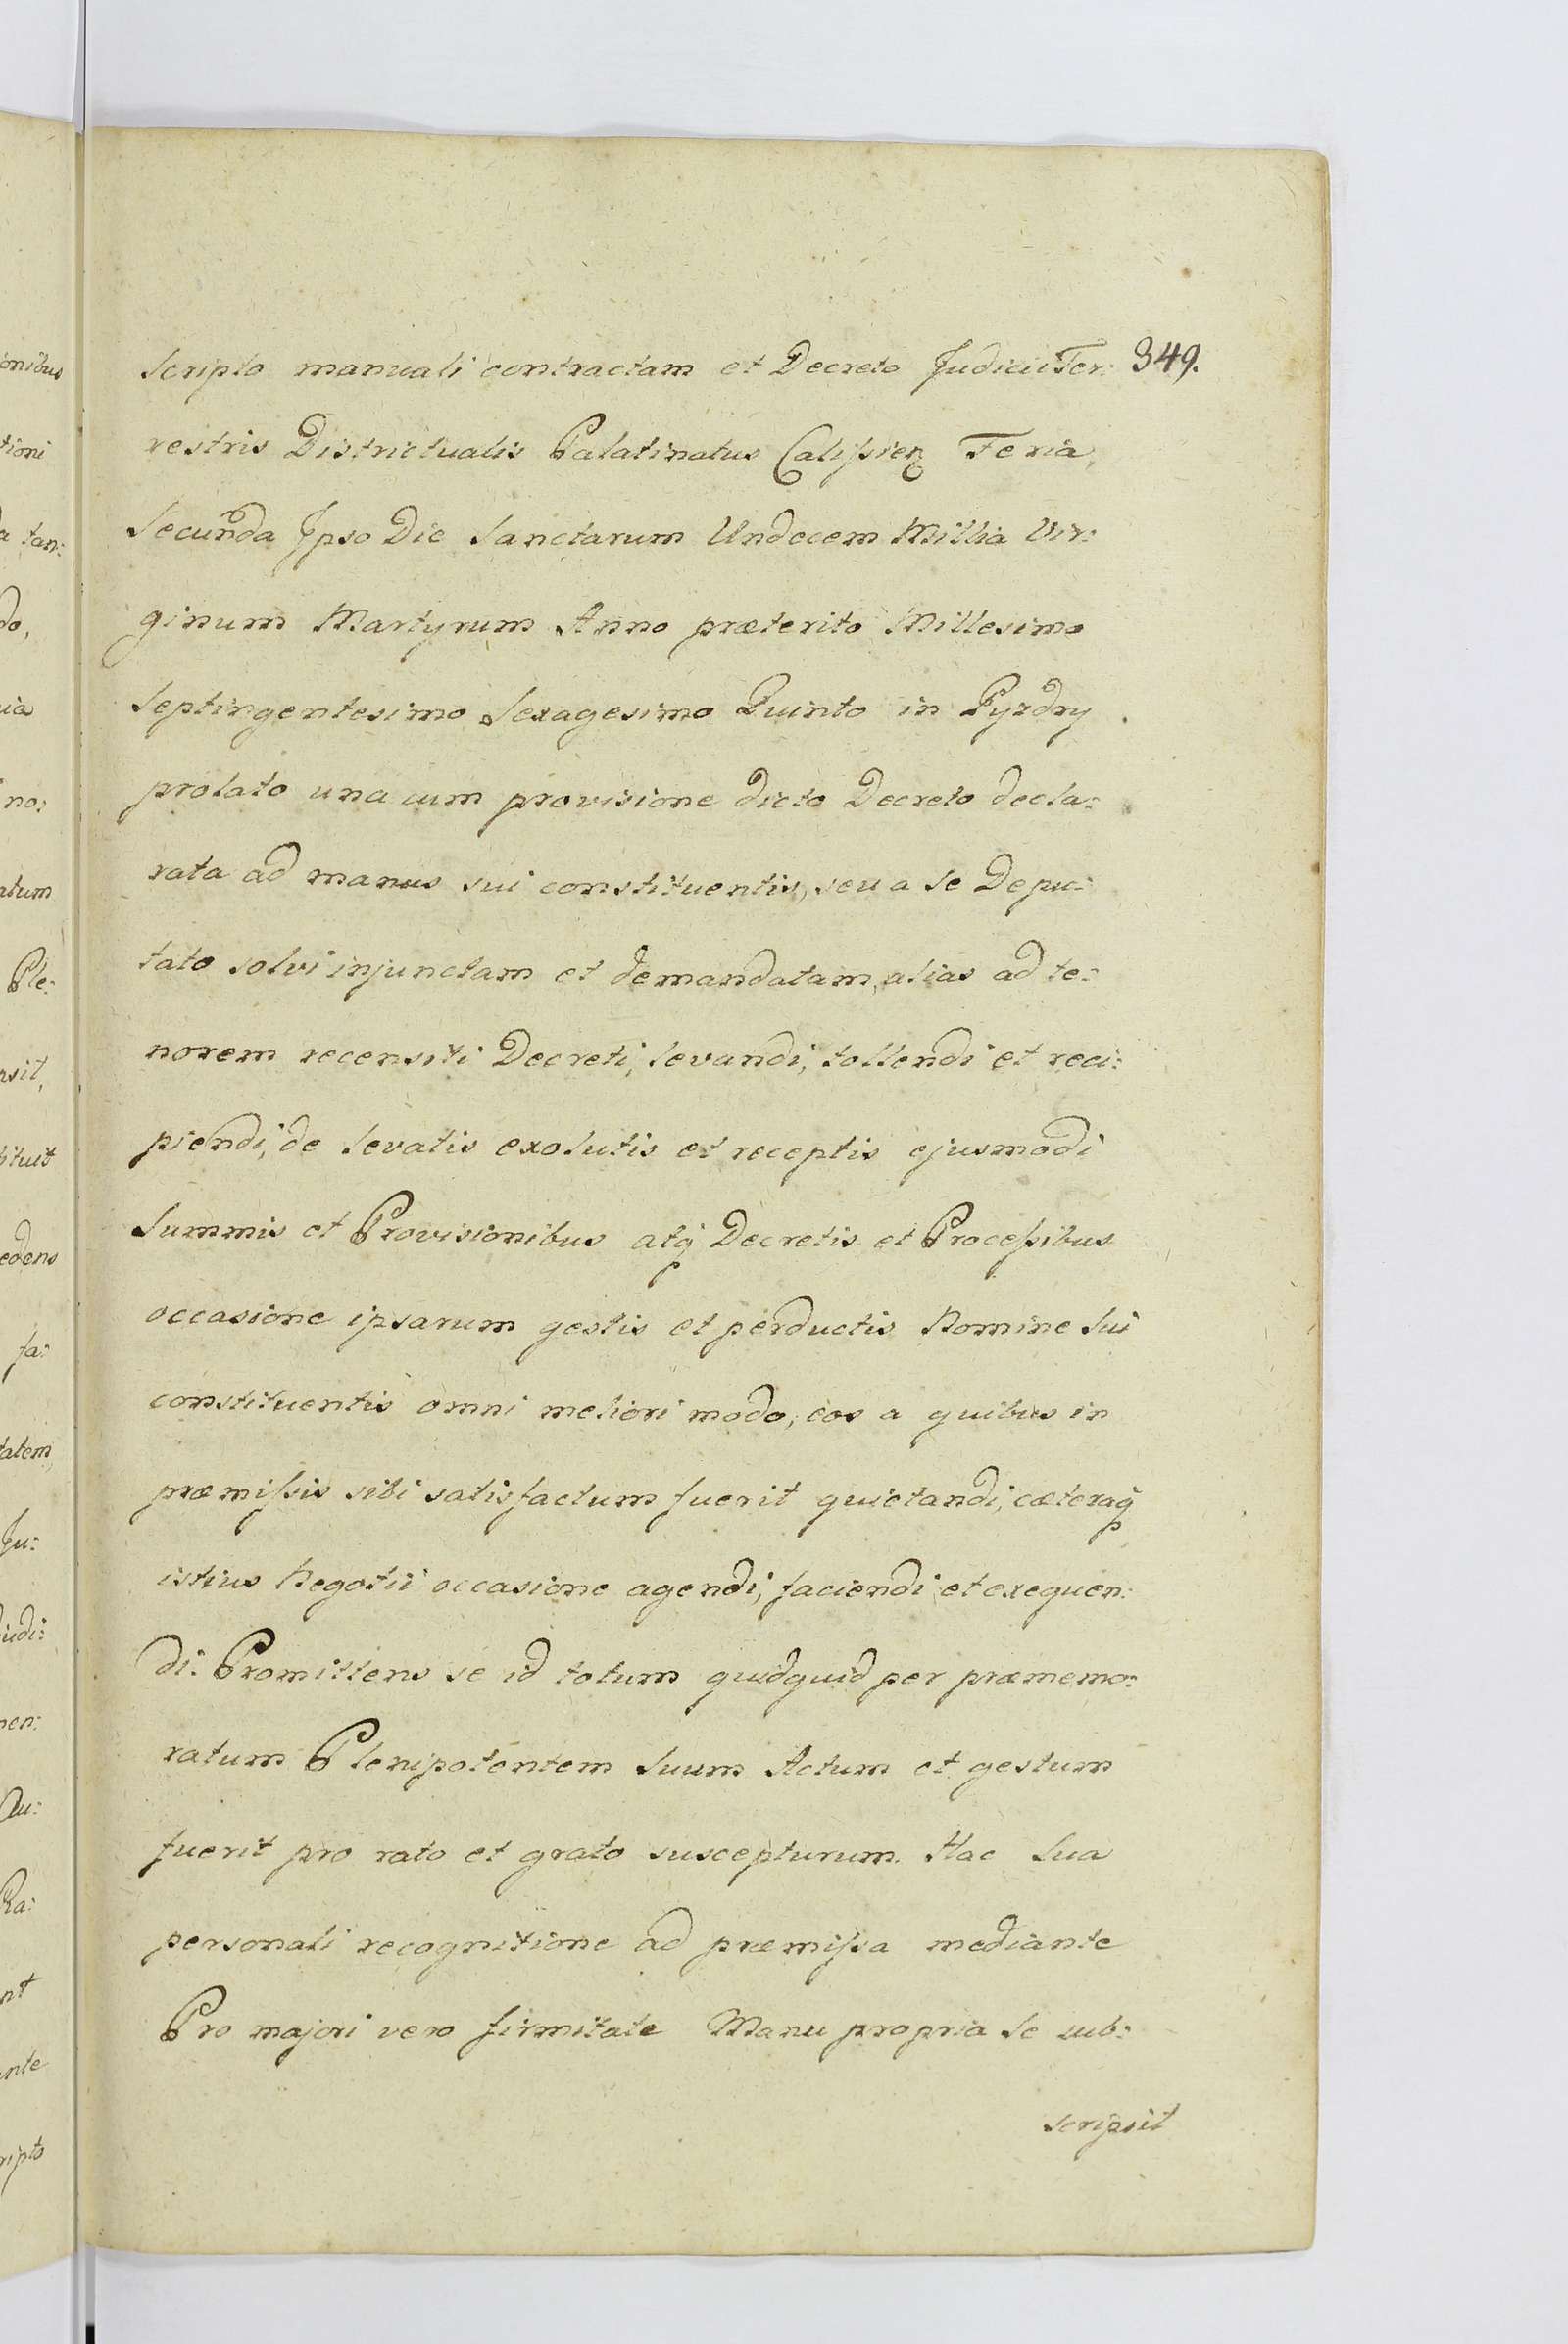 scripto manuali contractam et Decreto Judicii Ter: 349.
restris Districtualis Palatinatus Calissien Feria
Secunda Ipso Die Sanctarum Undecem Millia Vir:
ginum Martyrum Anno præterito Millesimo
Septingentesimo Sexagesimo Quinto in Pyzdry
prolato una cum provisione dicto Decreto decla:
rata ad manus sui constituentis, seu a se Depu:
tato solvi injunctam et demandatam, alias ad te:
norem recensiti Decreti, levandi, tollendi et reci:
piendi, de levatis exolutis et receptis ejusmodi
Summis et Provisionibus atq Decretis et Processibus
occasione ipsarum gestis et perductis Nomine Sui
constituentis omni meliori modo, eos a quibus in
præmissis sibi satisfactum fuerit quietandi, cæteraq
istius Negotii occasione agendi, faciendi et exequen:
di. Promittens se id totum quidquid per præmemo:
ratum Plenipotentem Suum Actum et gestum
fuerit pro rato et grato suscepturum. Hac Sua
personali recognitione ad præmissa mediante
Pro majori vero firmitate Manu propria Se sub:
scripsit